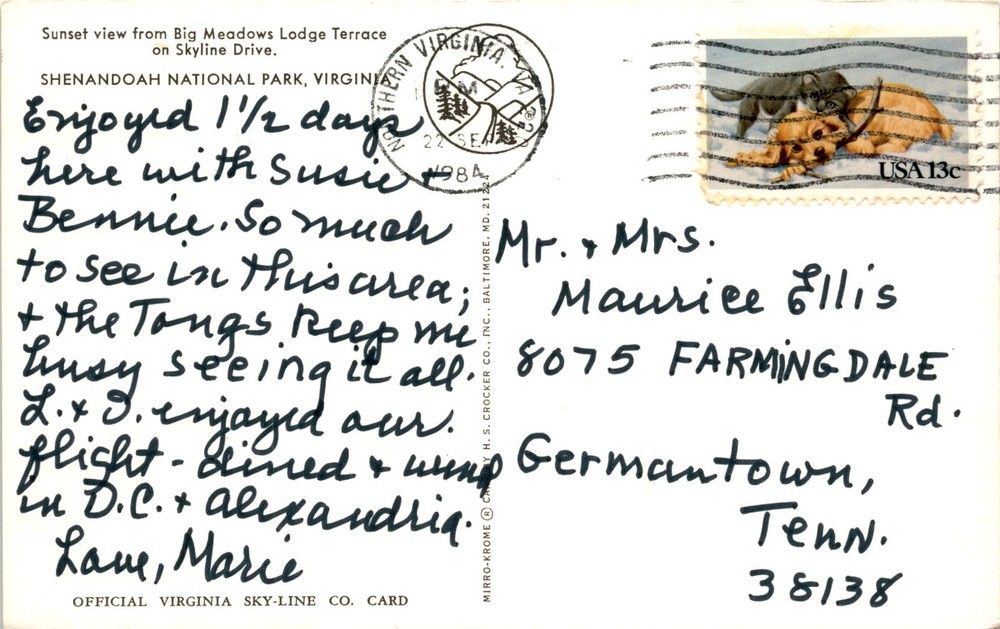 Sunset view from Big Meadows Lodge Terrace
on Skyline Drive.
SHENANDOAH NATIONAL PARK, VIRGINIA
Enjoyed 1 1/2 days
here with Susie +
Bennie. So much
to see in this area;
+ the Tongs keep me
busy seeing it all.
L. + I. enjoyed our
flight - dined +
in D.C. + Alexandria.
Love, Marie
OFFICIAL VIRGINIA SKY-LINE CO. CARD
MIRRO-KROME ® CARD BY H. S. CROCKER CO., INC., BALTIMORE, MD. 21224
NORTHERN VIRGINIA, VA
PM
22 SEP
1984
USA 13c
Mr. + Mrs.
Maurice Ellis
8075 FARMINGDALE
Rd.
Germantown,
Tenn.
38138